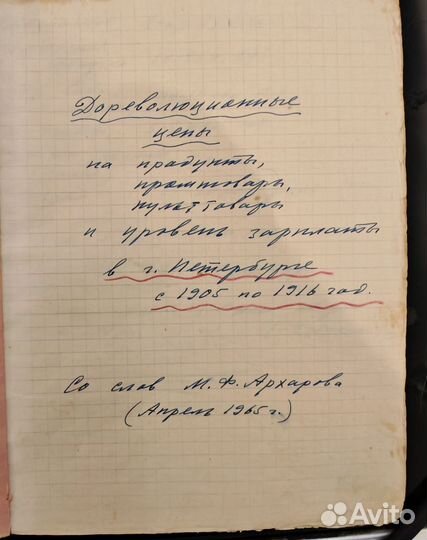 Дореволюционные
цены
на продукты,
промтовары,
культтовары
и уровень зарплаты
в г. Петербурге
с 1905 по 1916 год.
Со слов М. Ф. Архарова
(Апрель 1965 г.)
Avito